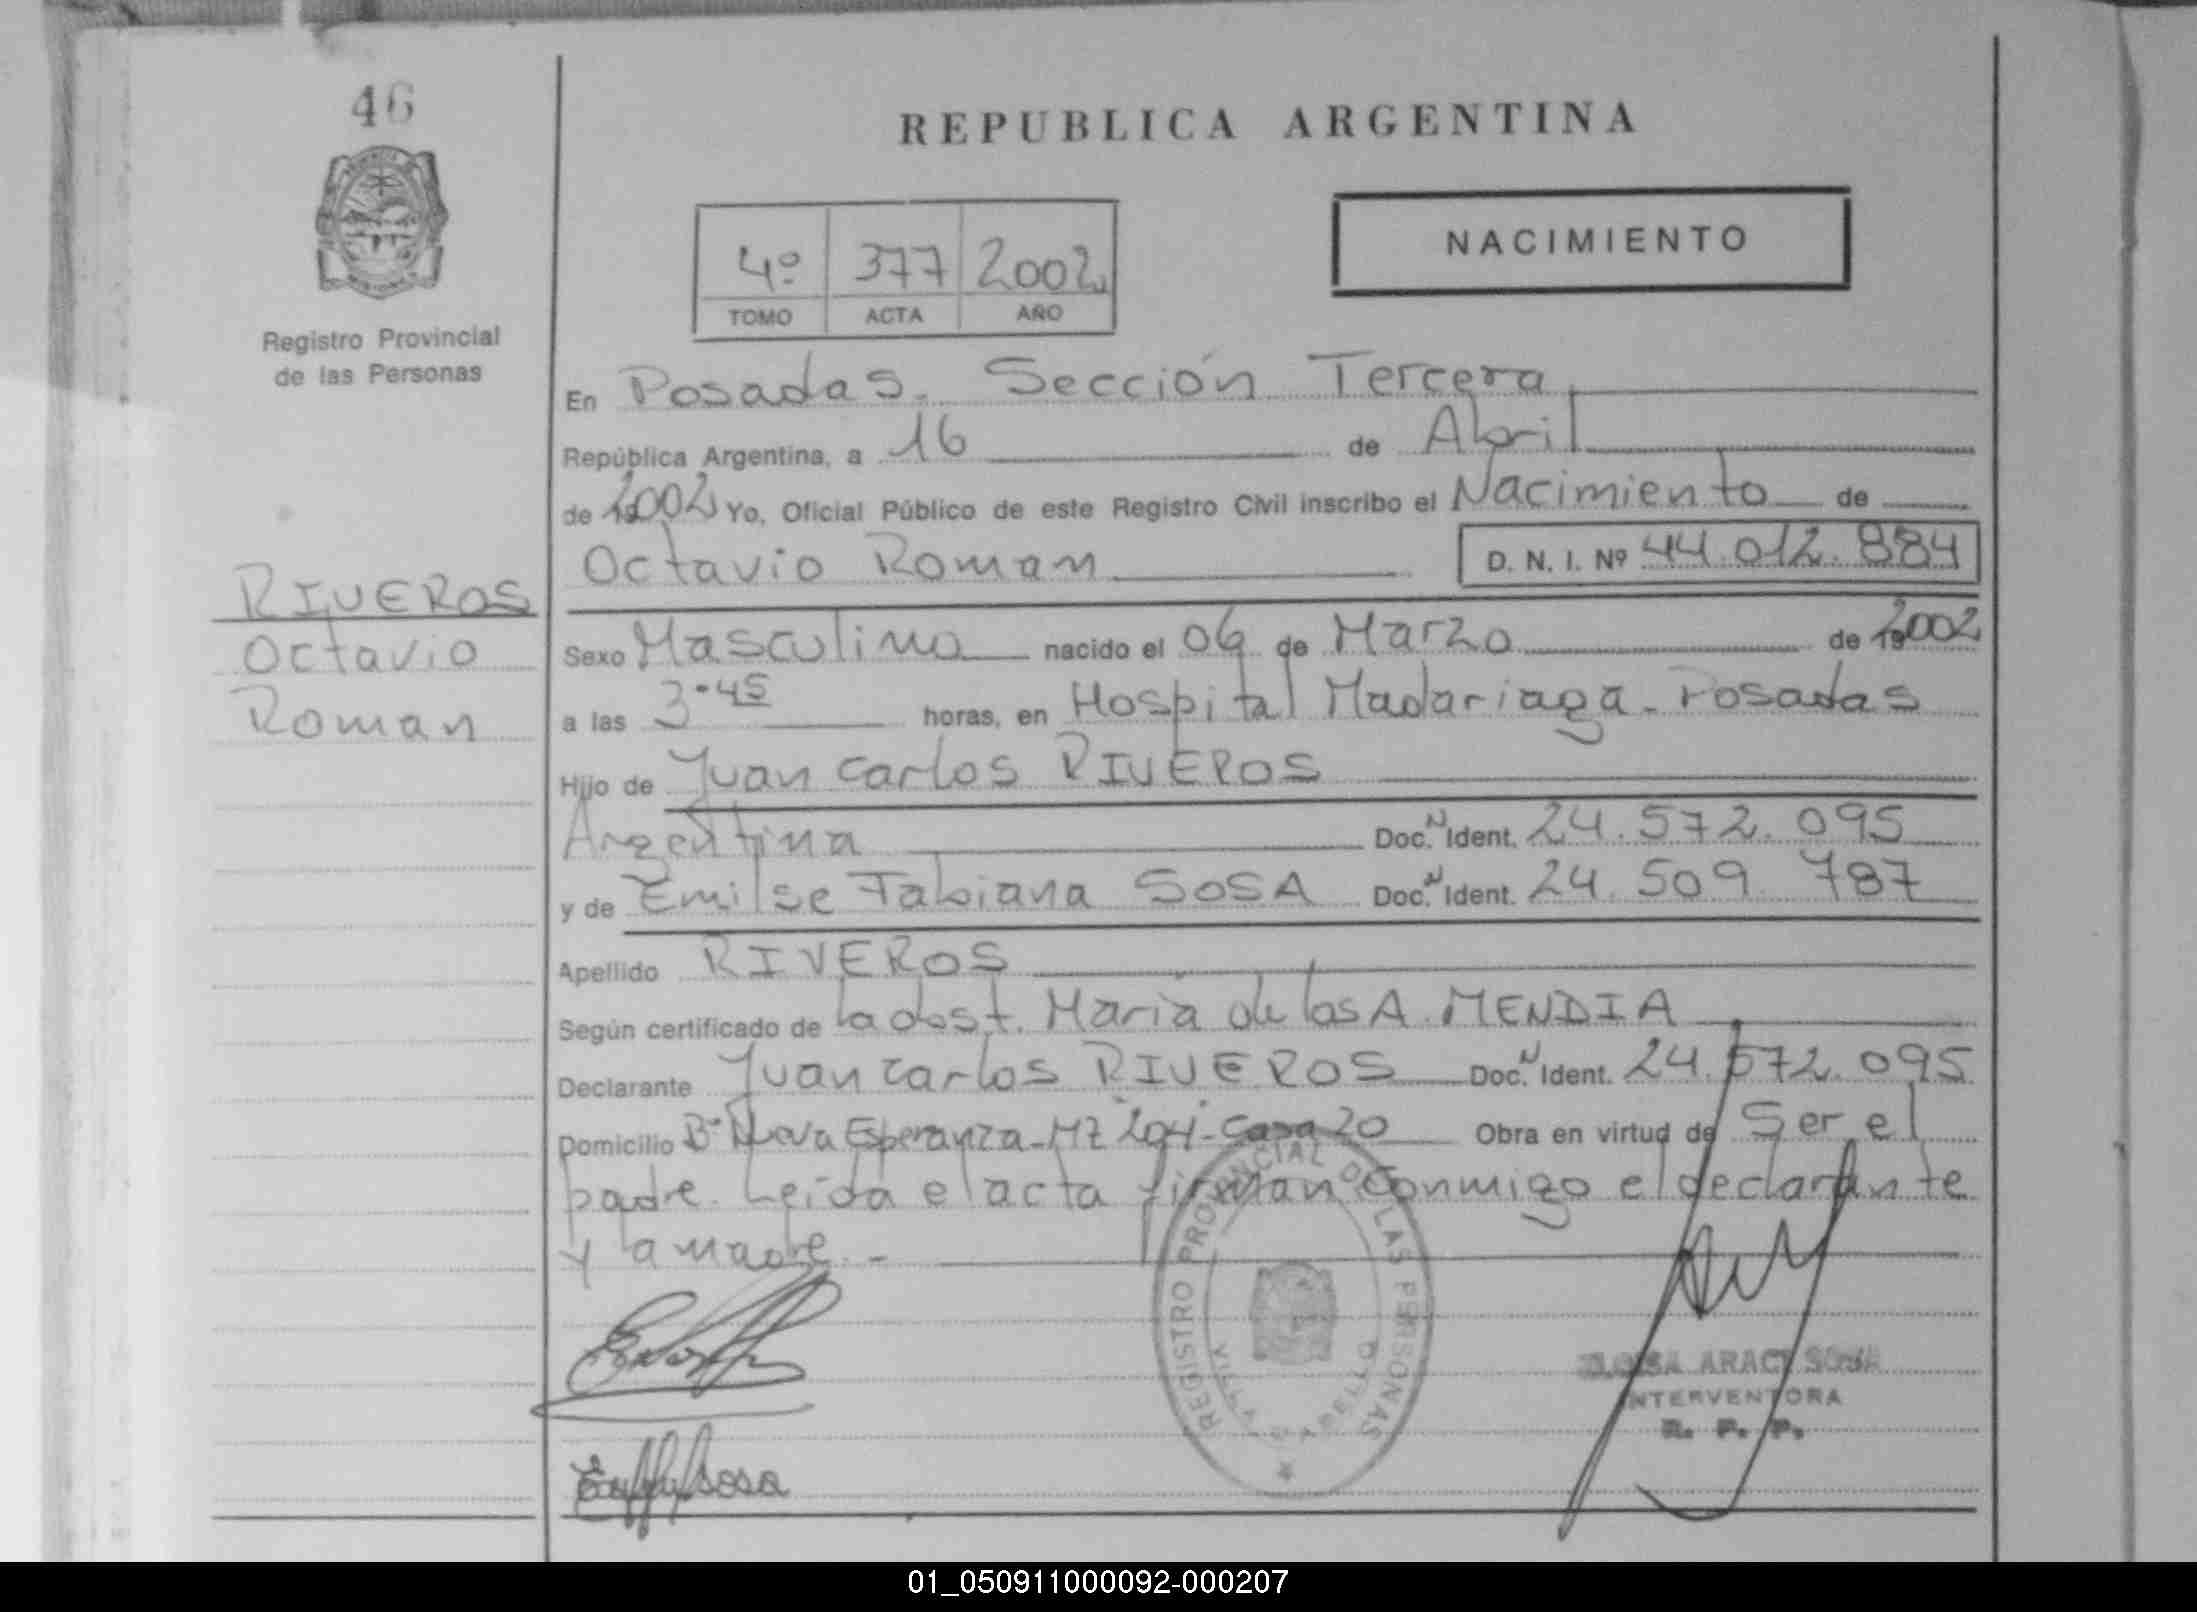 46
REPUBLICA ARGENTINA
NACIMIENTO
4º 377 2002
TOMO ACTA AÑO
Registro Provincial
de las Personas
En Posadas. Sección Tercera
República Argentina, a 16 de Abril
de 2002 Yo, Oficial Público de este Registro Civil inscribo el Nacimiento de
Octavio Roman D. N. I. Nº 44.012.884
RIVEROS
Octavio
Roman
Sexo Masculino nacido el 06 de Marzo de 2002
a las 3.45 horas, en Hospital Madariaga - Posadas
Hijo de Juan Carlos RIVEROS
Argentina Doc. N Ident. 24.572.095
y de Emilse Fabiana SOSA Doc. N Ident. 24.509.787
Apellido RIVEROS
Según certificado de la obst. Maria de los A. MENDIA
Declarante Juan Carlos RIVEROS Doc. N Ident. 24.572.095
Domicilio Bº Nueva Esperanza - MZ 204 - Casa 20 Obra en virtud de Ser el
padre. Leida el acta firman conmigo el declarante
y la madre. -
REGISTRO PROVINCIAL DE LAS PERSONAS
VILLA CABELLO
Sosa
INTERVENTORA
R. P. P.
01_050911000092-000207